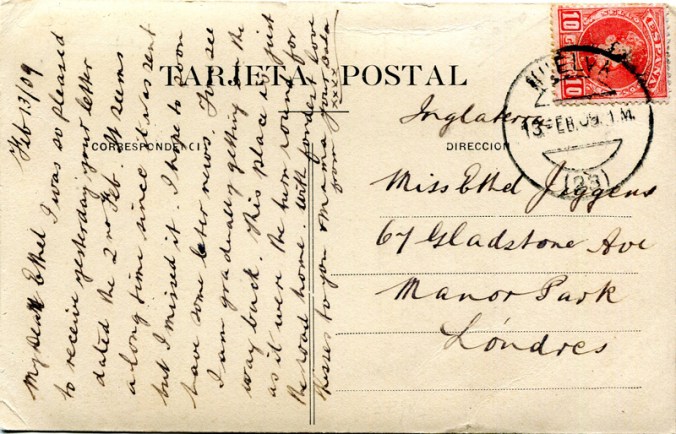 TARJETA POSTAL
CORRESPONDENCIA
DIRECCION
Feb 13/09
My dear Ethel I was so pleased
to receive yesterday your letter
dated the 2nd Feb It seems
a long time since it was sent
but I missed it. I hope to soon
have some later news. You see
I am gradually getting the
way back. This place is just
as it were the turn round for
the road home. With fondest love
kisses to you & Mama
from your Dada
xxxx
Inglaterra
Miss Ethel Jiggens
67 Gladstone Ave
Manor Park
Lóndres
ESPAÑA
10 10
HUELVA
13 FEB.09. 1M.